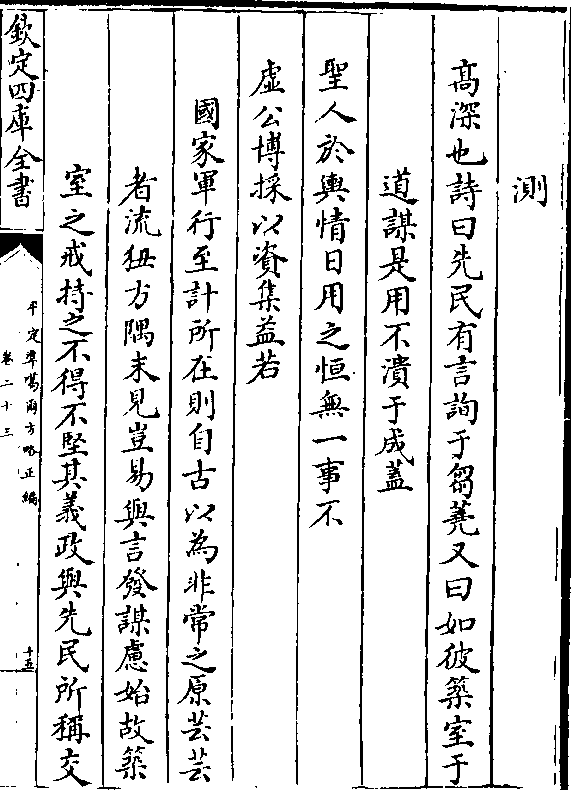 測
髙深也詩曰先民有言詢于芻蕘又曰如彼築室于
道謀是用不潰于成蓋
聖人於輿情日用之恒無一事不
虛公博採以資集益若
國家軍行至計所在則自古以為非常之原芸芸
者流狃方隅末見豈易與言發謀慮始故築
室之戒持之不得不堅其義政與先民所稱交
欽定四庫全書
平定準噶爾方略正編
卷二十三
十五